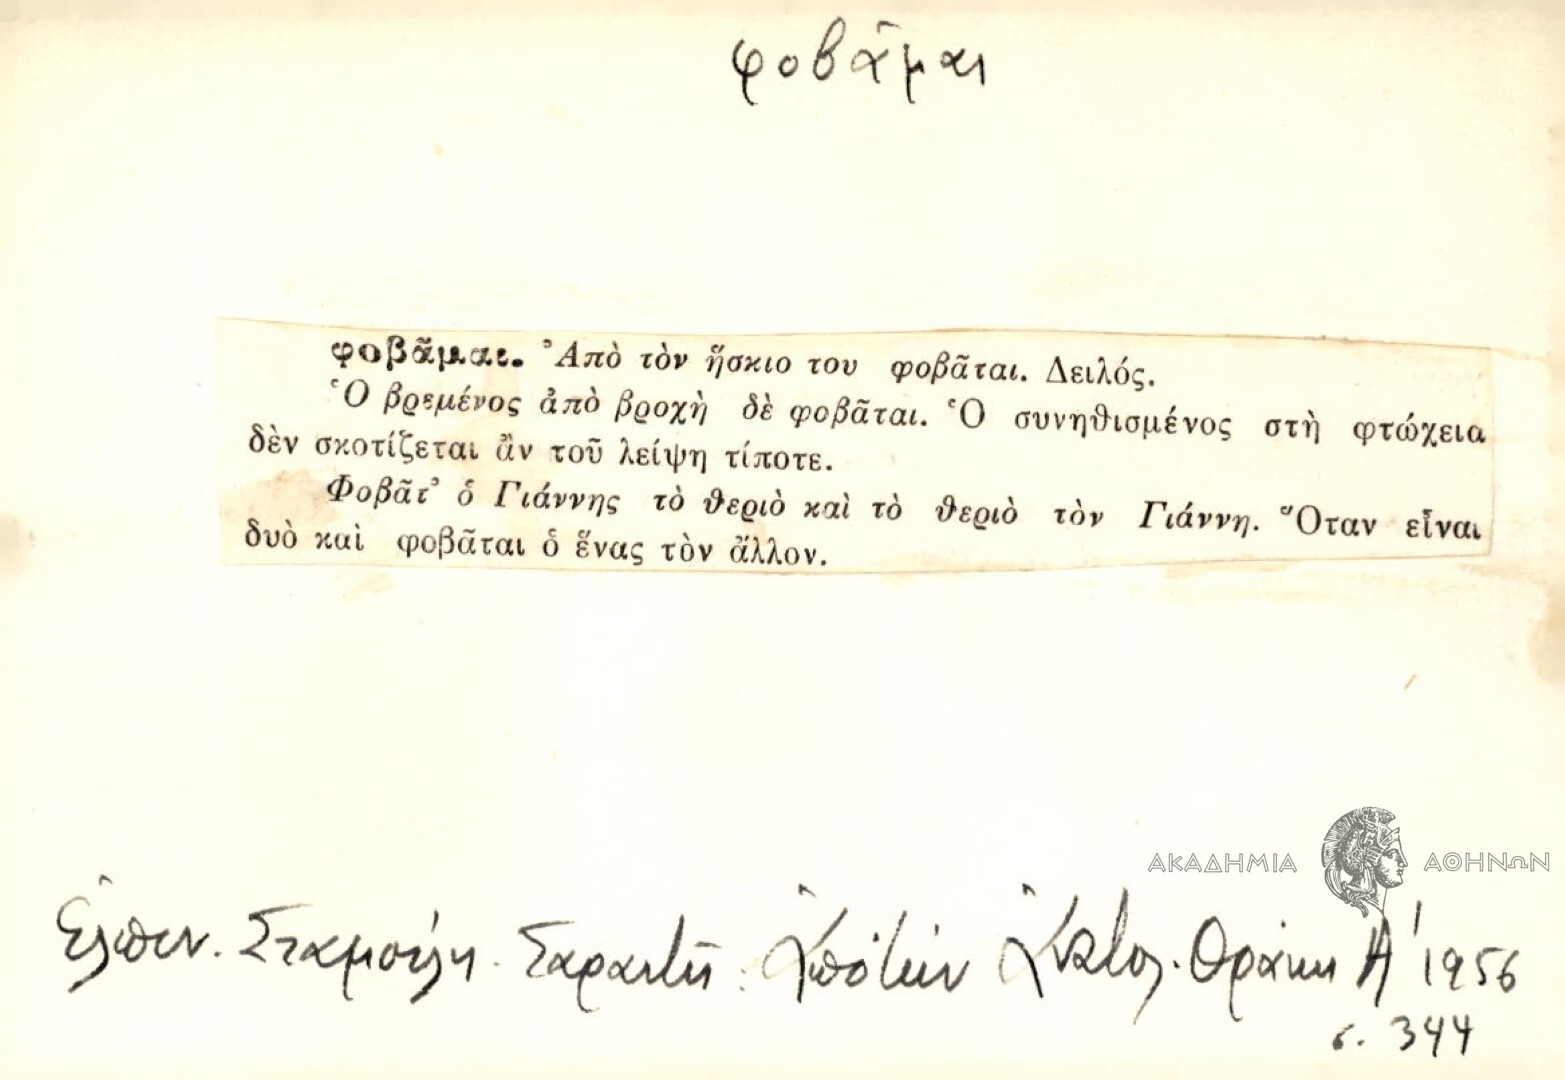 φοβᾶμαι
φοβᾶμαι. Ἀπὸ τὸν ἥσκιο του φοβᾶται. Δειλός.
Ὁ βρεμένος ἀπὸ βροχὴ δὲ φοβᾶται. Ὁ συνηθισμένος στὴ φτώχεια
δὲν σκοτίζεται ἂν τοῦ λείψη τίποτε.
Φοβᾶτ' ὁ Γιάννης τὸ θεριὸ καὶ τὸ θεριὸ τὸν Γιάννη. Ὅταν εἶναι
δυὸ καὶ φοβᾶται ὁ ἕνας τὸν ἄλλον.
ΑΚΑΔΗΜΙΑ ΑΘΗΝΩΝ
Ἐλπιν. Σταμούλη - Σαραντῆ: Ἀπὸ τὴν Ἀνατολ. Θράκη Α' 1956
σ. 344